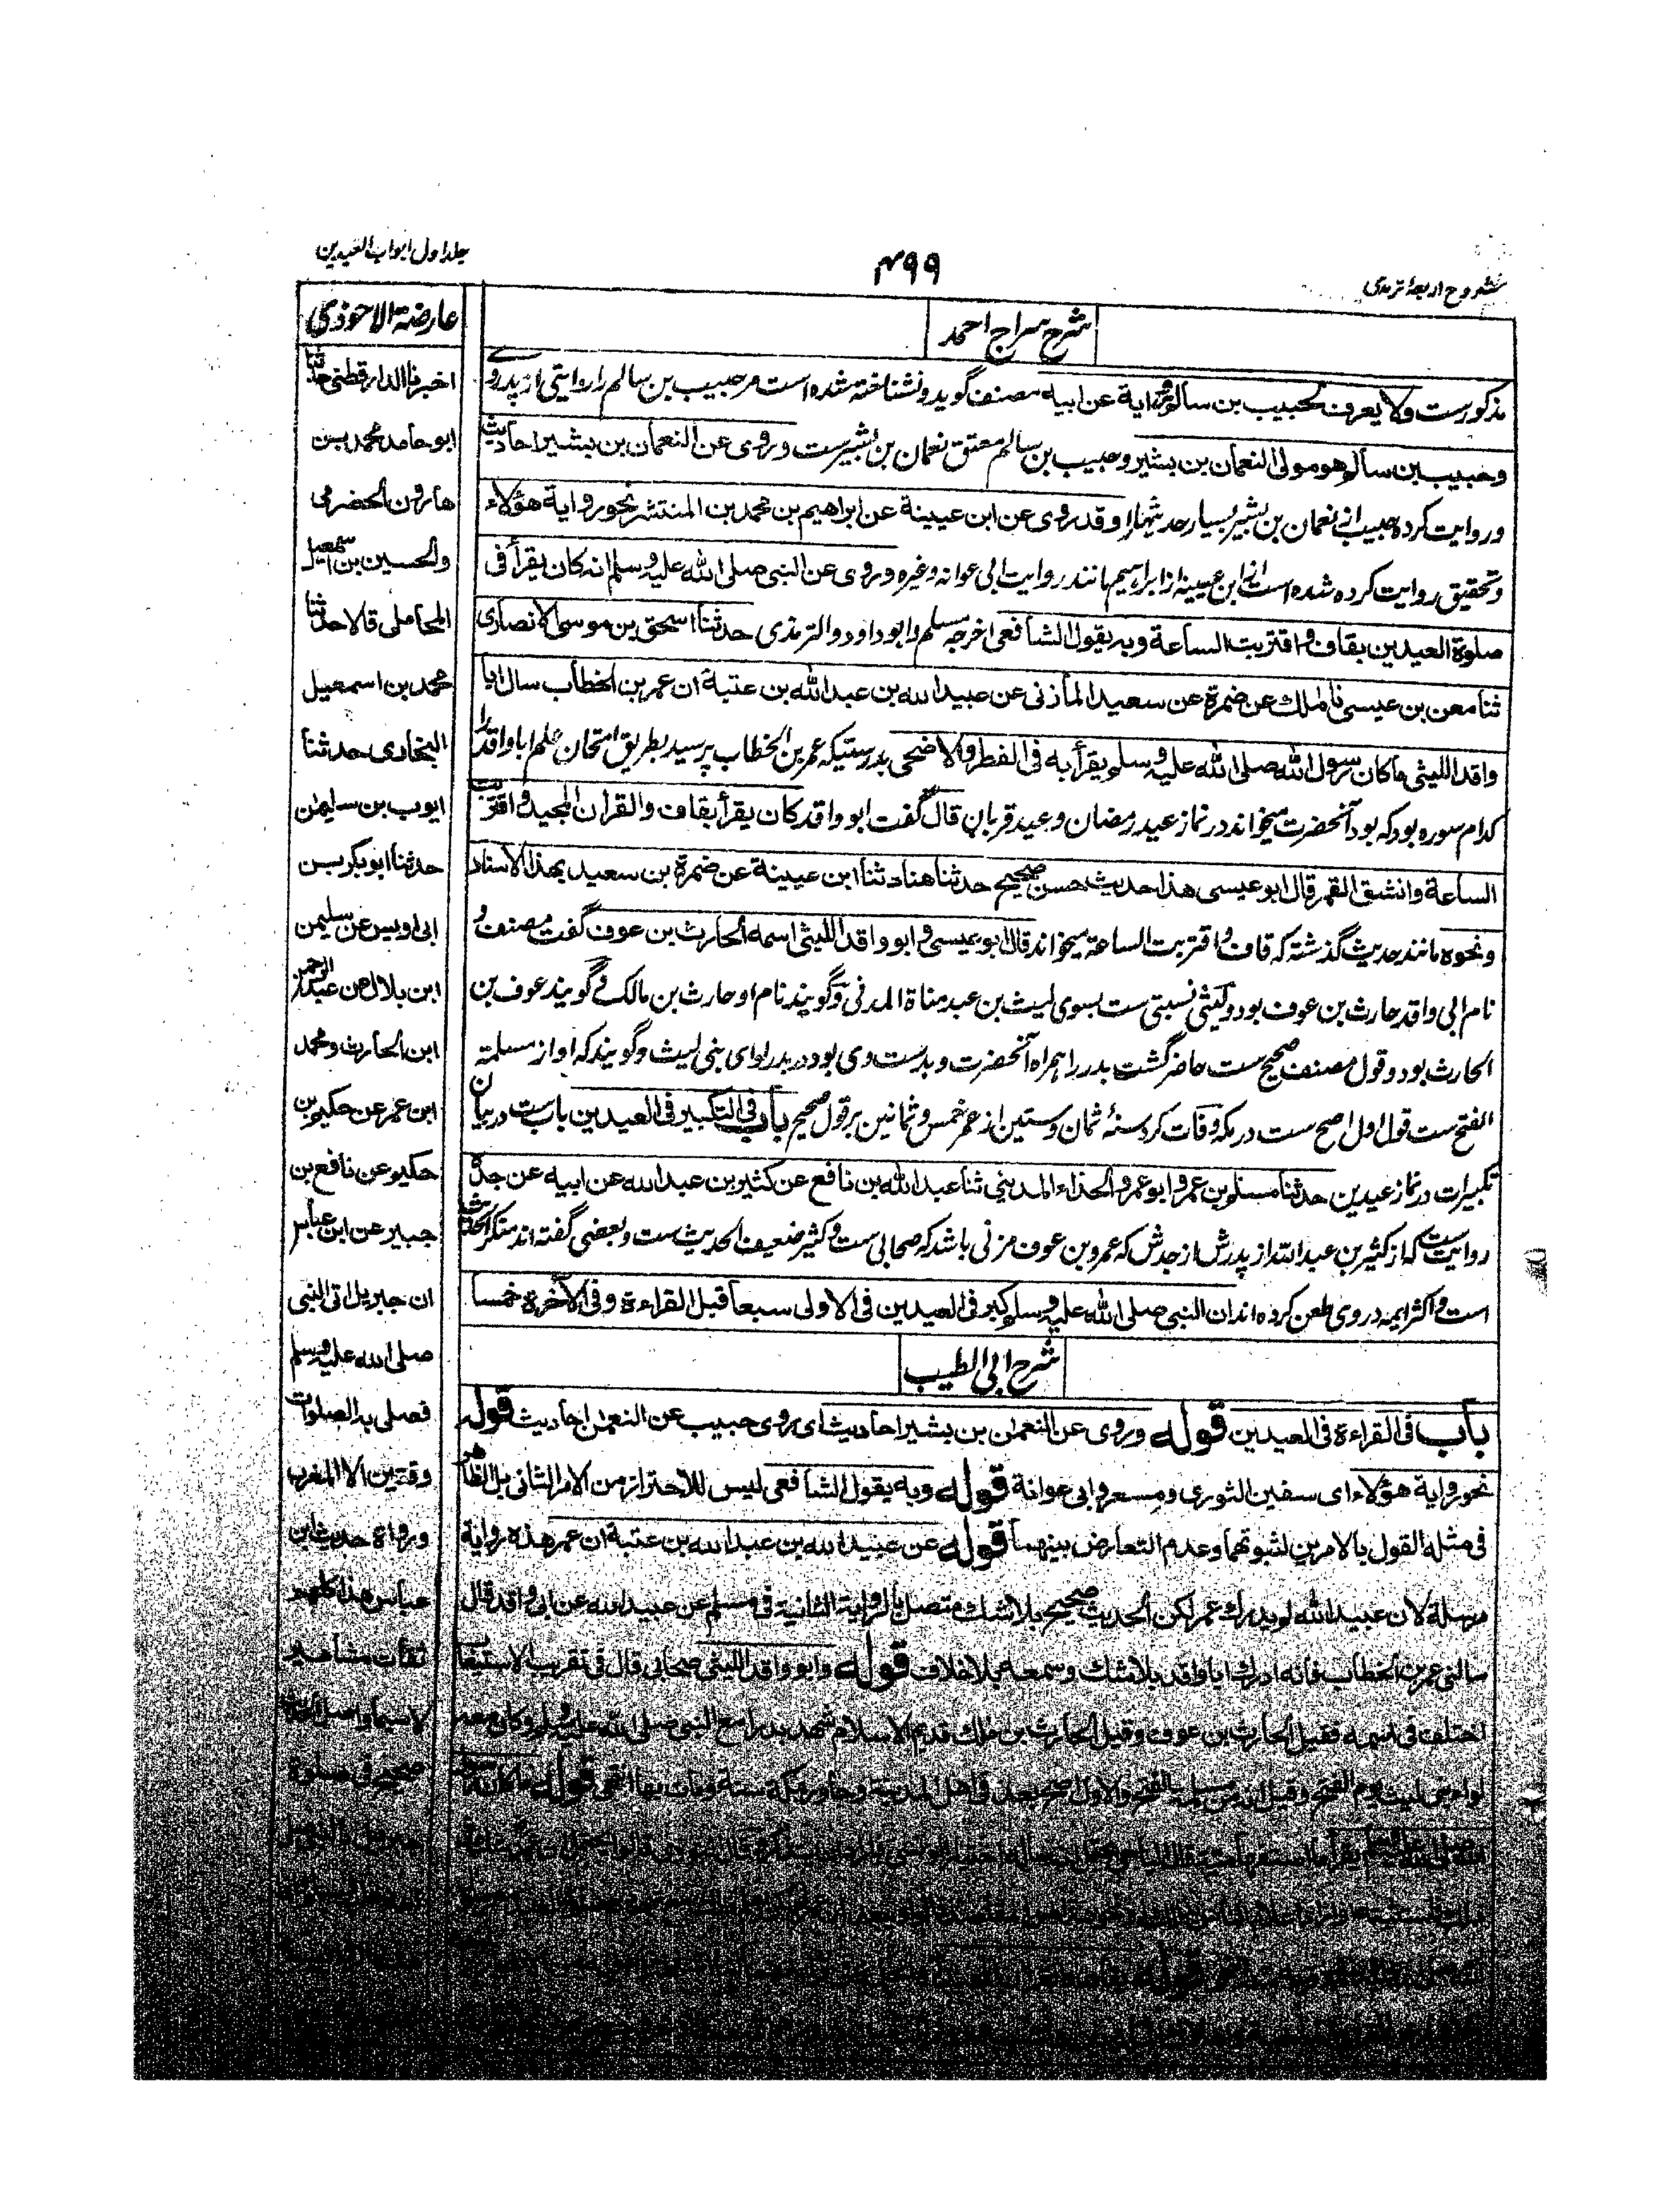 شروح اربعهٔ ترمذی
۴۹۹
جلد اول ابواب العیدین
شرح سراج احمد
مذکورست ولا يعرف لحبيب بن سالم رواية عن ابيه مصنف گوید و نشناخته شده است مر حبیب بن سالم را روایتی از پدر وے
وحبيب بن سالم هو مولى النعمان بن بشير وحبیب بن سالم معتق نعمان بن بشیر ست وروى عن النعمان بن بشير احاديث
و روایت کرده حبیب از نعمان بن بشیر بسیار حدیثها را وقد روى عن ابن عيينة عن ابراهيم بن محمد بن المنتشر نحو رواية هؤلاء
و تحقیق روایت کرده شده است از ابن عیینه از ابراهیم مانند روایت ابی عوانه و غیره وروى عن النبى صلى الله عليه وسلم انه كان يقرأ فى
صلوة العيدين بقاف واقتربت الساعة وبه يقول الشافعى اخرجه مسلم وابو داود والترمذى حدثنا اسحق بن موسى الانصارى
ثنا معن بن عيسى نا ملك عن ضمرة عن سعيد المازنى عن عبيد الله بن عبد الله بن عتبة ان عمر بن الخطاب سال ابا
واقد الليثى ما كان رسول الله صلى الله عليه وسلم يقرأ به فى الفطر والاضحى بدرستیکه عمر بن الخطاب پرسید بطریق امتحان علم ابا واقد را
کدام سوره بود که بود آنحضرت میخواند در نماز عید رمضان و عید قربان قال گفت ابو واقد كان يقرأ بقاف والقران المجيد واقتربت
الساعة وانشق القمر قال ابو عيسى هذا حديث حسن صحيح حدثنا هناد ثنا ابن عيينة عن ضمرة بن سعيد بهذا الاسناد
ونحوه مانند حدیث گذشته که قاف و اقتربت الساعة میخواند قال ابو عيسى وابو واقد الليثى اسمه الحارث بن عوف گفت مصنف و
نام ابی واقد حارث بن عوف بود و لیثی نسبتی ست بسوی لیث بن عبد مناة المدنی و گویند نام او حارث بن مالک و گویند عوف بن
الحارث بود و قول مصنف صحیح ست حاضر گشت بدر را همراه آنحضرت و بدست وی بود در بدر لوای بنی لیث و گویند که او از مسلمة
الفتح ست قول اول اصح ست در مکه وفات کرد سنهٔ ثمان و ستین از عمر خمس و ثمانین بر قول صحیح باب فى التكبير فى العيدين باب ست در بیان
تکبیرات در نماز عیدین حدثنا مسلم بن عمرو ابو عمرو الحذاء المدينى ثنا عبد الله بن نافع عن كثير بن عبد الله عن ابيه عن جده
روایت ست که از کثیر بن عبد الله از پدرش از جدش که عمرو بن عوف مزنی باشد که صحابی ست و کثیر ضعیف الحدیث ست و بعضی گفته اند منکر الحدیث
است و اکثر ایمه در وی طعن کرده اند ان النبى صلى الله عليه وسلم كبر فى العيدين فى الاولى سبعا قبل القراءة وفى الآخرة خمسا
شرح ابی الطیب
باب فى القراءة فى العيدين قوله وروى عن النعمان بن بشير احاديث اى روى حبيب عن النعمن احاديث قوله
نحو رواية هؤلاء اى سفين الثورى ومسعر وابى عوانة قوله وبه يقول الشافعى ليس للاحتراز من الامر الثانى بل الظاهر
فى مثله القول بالامرين لثبوتهما وعدم التعارض بينهما قوله عن عبيد الله بن عبد الله بن عتبة ان عمر هذه رواية
مرسلة لان عبيد الله لم يدرك عمر لكن الحديث صحيح بلا شك متصل بالرواية الثانية فى مسلم عن عبيد الله عن ابى واقد قال
سالنى عمر بن الخطاب فانه ادرك ابا واقد بلا شك وسمعه بلا خلاف قوله وابو واقد الليثى صحابى قال فى تقريب الاستيعاب
اختلف فى اسمه فقيل الحارث بن عوف وقيل الحارث بن ملك قديم الاسلام شهد بدرا مع النبى صلى الله عليه وسلم وكان معه
لواء بنى ليث يوم الفتح وقيل انه من مسلمة الفتح والاول اصح يعد فى اهل المدينة وجاور بمكة سنة ومات بها انتهى قوله ما كان
عارضة الاحوذى
اخبرنا الدارقطنى حدثنا
ابو حامد محمد بن
هارون الحضرمى
والحسين بن اسمعيل
المحاملى قالا حدثنا
محمد بن اسمعيل
البخارى حدثنا
ايوب بن سليمن
حدثنا ابو بكر بن
ابى اويس عن سليمن
ابن بلال عن عبد الرحمن
ابن الحارث ومحمد
ابن عمر عن حكيم بن
حكيم عن نافع بن
جبير عن ابن عباس
ان جبريل اتى النبى
صلى الله عليه وسلم
فصلى به الصلوات
وقتين الا المغرب
ورواة حديث ابن
عباس هذا كلهم
ثقات مشاهير
لا سيما واصل الحديث
صحيح فى صلوة